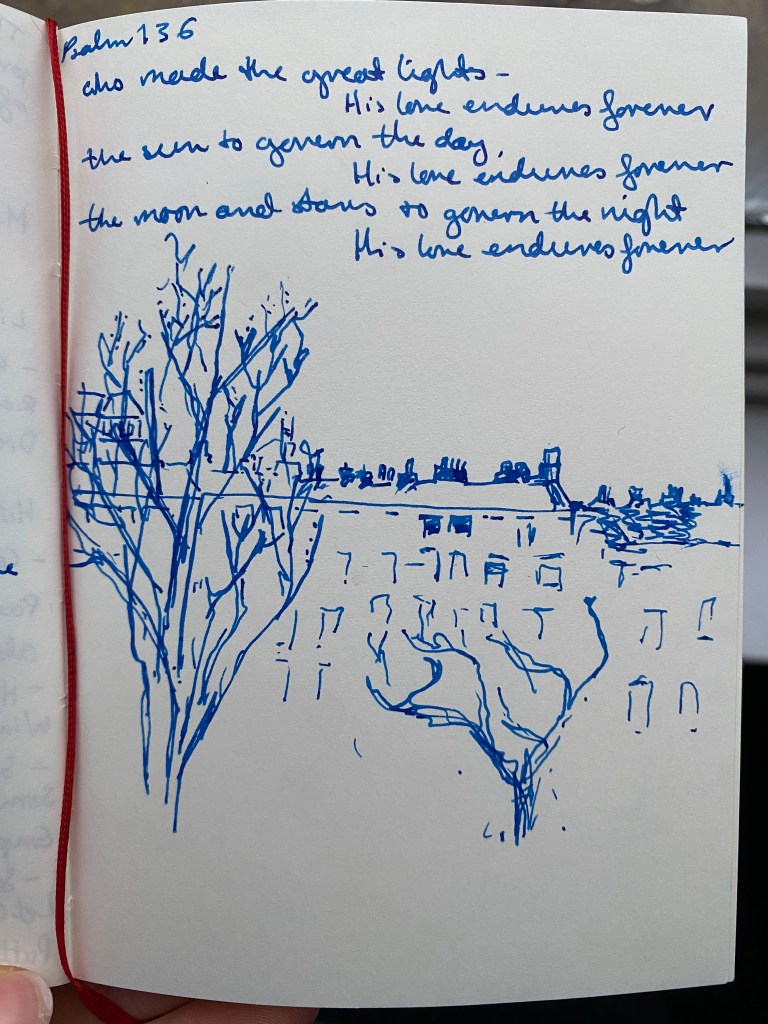 Psalm 136
who made the great lights -
His love endures forever
the sun to govern the day,
His love endures forever
the moon and stars to govern the night
His love endures forever